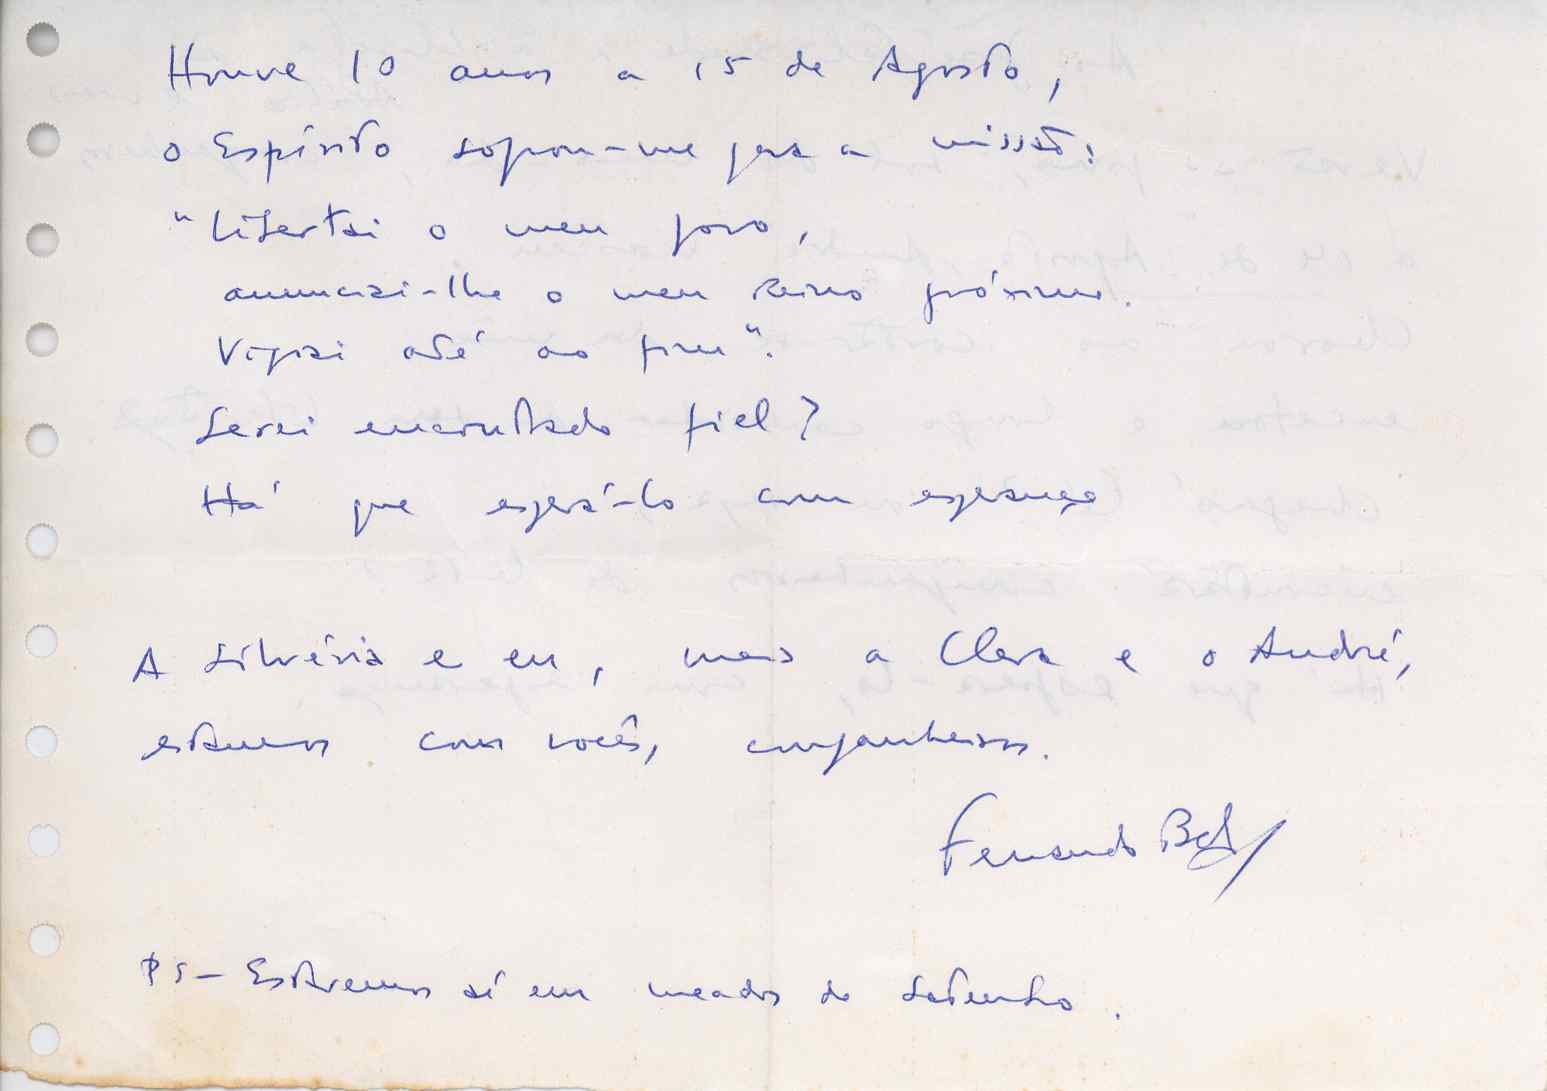 Houve 10 anos a 15 de Agosto,
o Espírito soprou-me para a missão:
"Libertai o meu povo,
anunciai-lhe o meu Reino próximo.
Vigiai até ao fim".
Serei encontrado fiel?
Há que esperá-lo com esperança
A Silvéria e eu, mais a Clara e o André,
estamos com vocês, companheiros.
Fernando
PS - Estaremos aí em meados de Setembro.